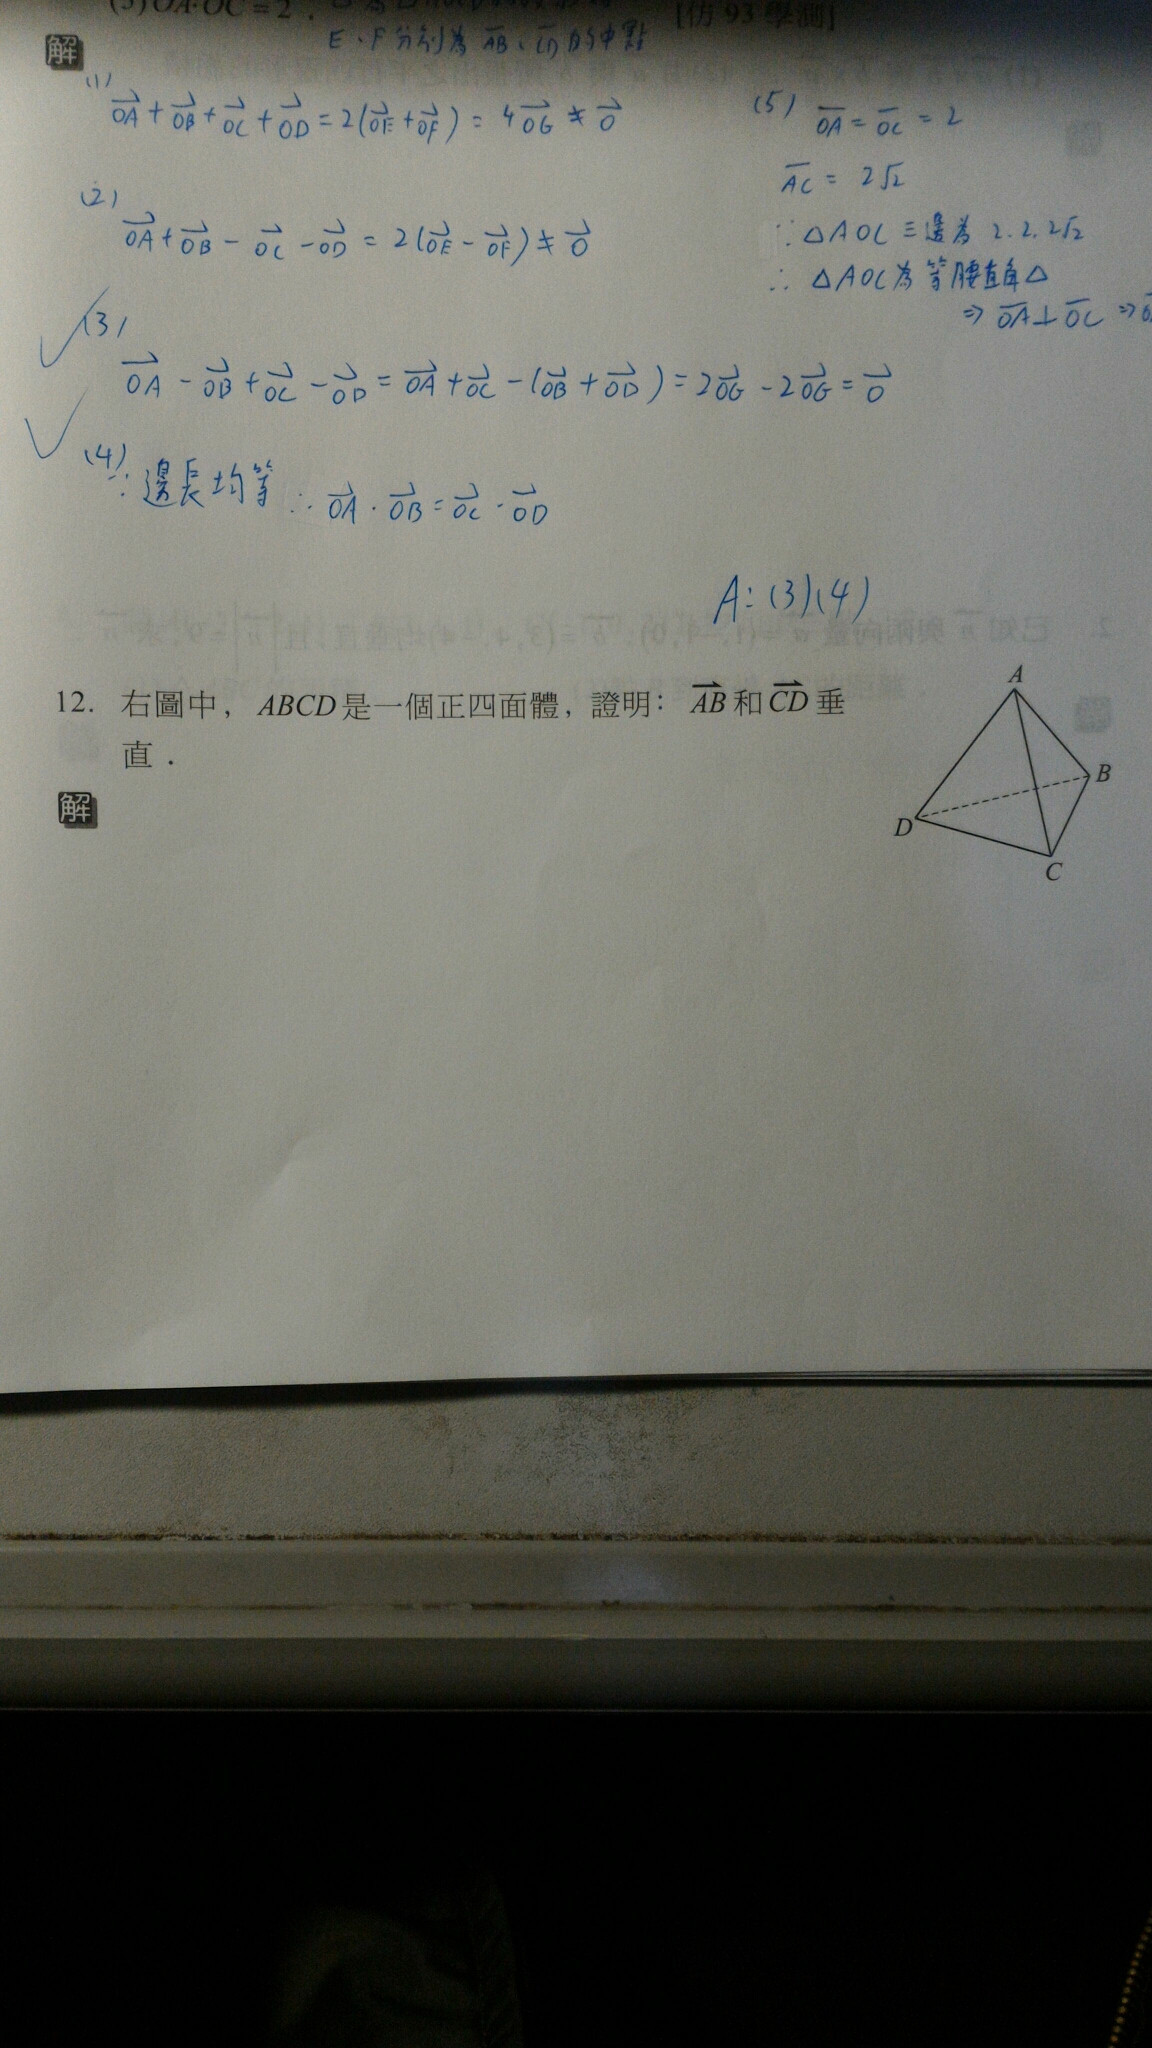 (5) OA·OC = 2 .
[仿 93 學測]
E、F分別為 AB、CD 的中點
解
(1) OA + OB + OC + OD = 2(OE + OF) = 4OG ≠ 0
(2) OA + OB - OC - OD = 2(OE - OF) ≠ 0
(3) OA - OB + OC - OD = OA + OC - (OB + OD) = 2OG - 2OG = 0
(4) ∵ 邊長均等 ∴ OA · OB = OC · OD
(5) OA = OC = 2
AC = 2√2
∵ △AOC 三邊為 2.2.2√2
∴ △AOC為等腰直角△
⇒ OA⊥OC ⇒
A:(3)(4)
12. 右圖中，ABCD 是一個正四面體，證明：AB 和 CD 垂
直．
解
A
B
D
C